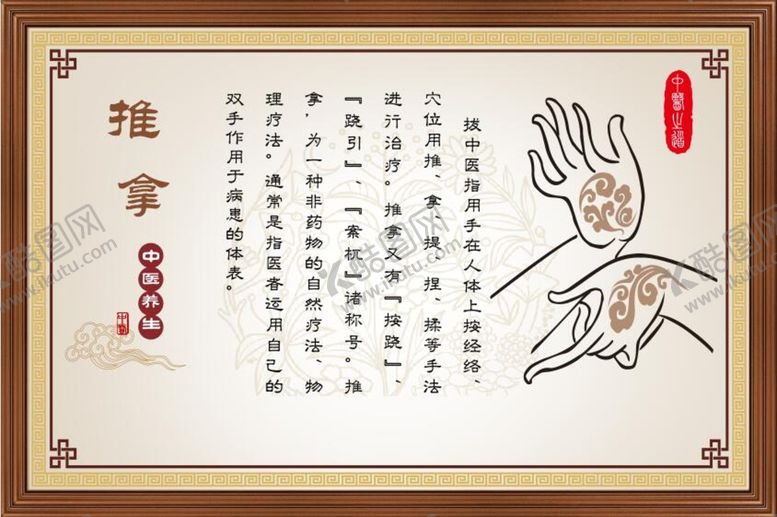 推拿
中医养生
中醫之道
拔中医指用手在人体上按经络、
穴位用推、拿、提、捏、揉等手法
进行治疗。推拿又有『按跷』、
『跷引』、『案杌』诸称号。推
拿，为一种非药物的自然疗法、物
理疗法。通常是指医者运用自己的
双手作用于病患的体表。
酷图网
www.ikutu.com
酷图网
www.ikutu.com
酷图网
www.ikutu.com